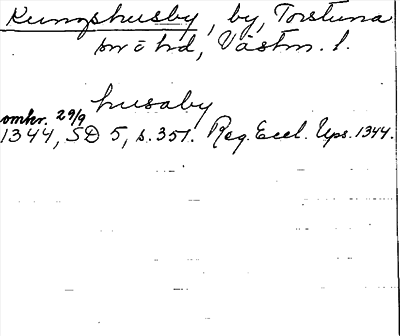 Kungshusby, by, Torstuna
sn o hd, Västm. l.
husaby
omkr. 29/9
1344, SD 5, s. 351. Reg. Eccl. Ups. 1344.